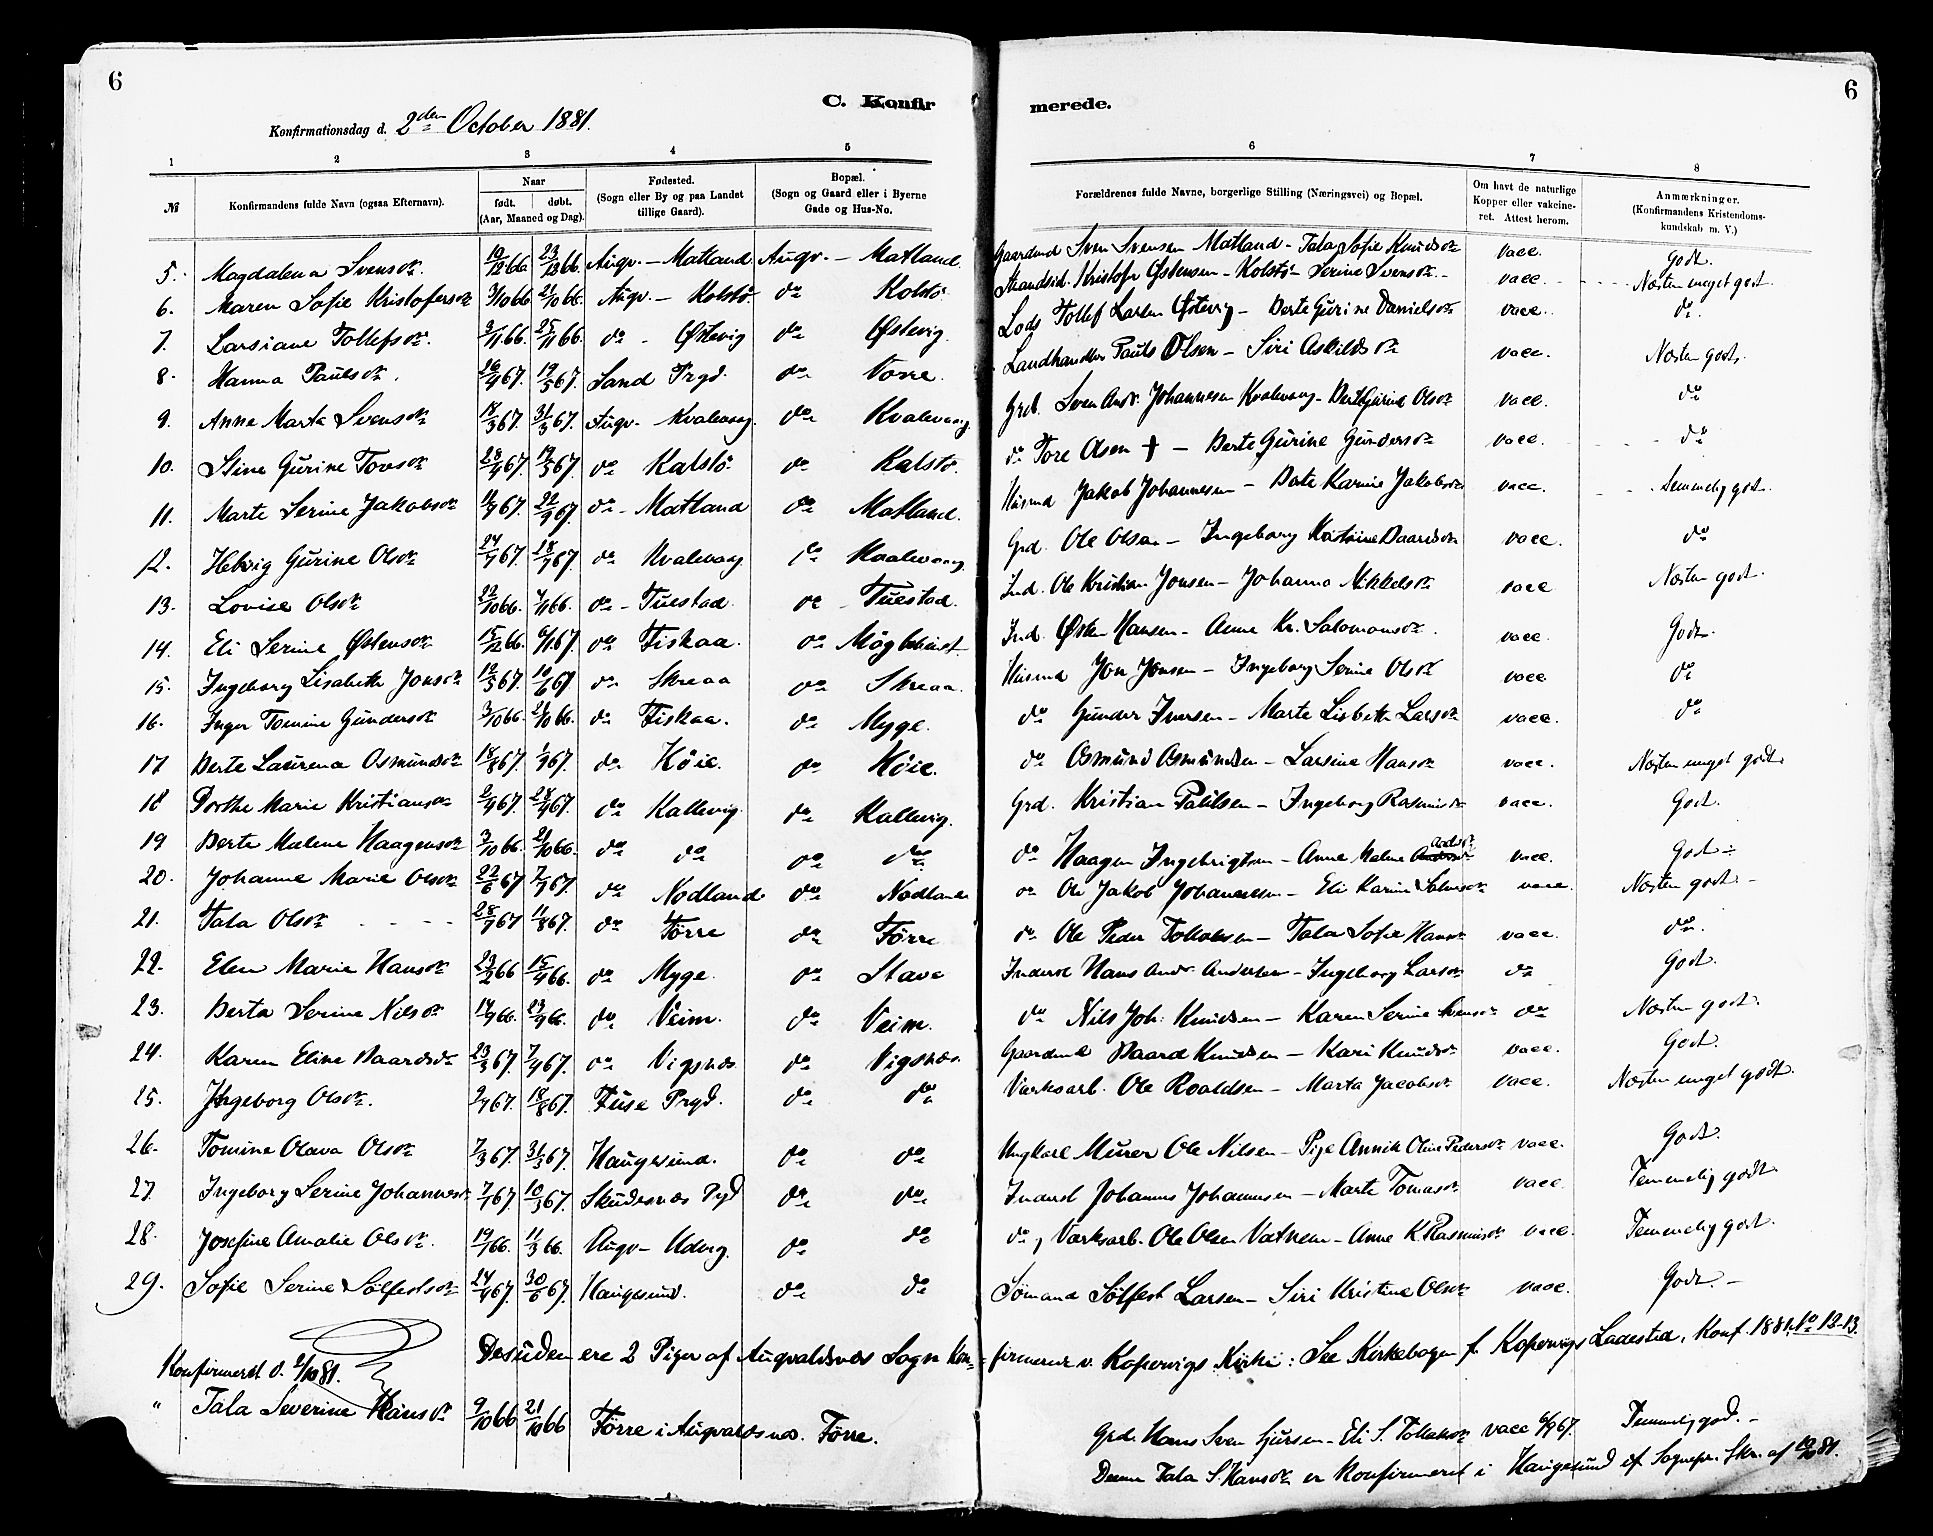 6
C. Konfir merede.
6
Konfirmationsdag d. 2den October 1881.
1 2 3 4 5 6 7 8
№ Konfirmandens fulde Navn (ogsaa Efternavn). Naar født. døbt. (Aar, Maaned og Dag). Fødested. (Sogn eller By og paa Landet tillige Gaard). Bopæl. (Sogn og Gaard eller i Byerne Gade og Hus-No. Forældrenes fulde Navne, borgerlige Stilling (Næringsvei) og Bopæl. Om havt de naturlige Kopper eller vakcineret. Attest herom. Anmærkninger. (Konfirmandens Kristendomskundskab m. V.)
5. Magdalena Svensdtr. 10/12 66 23/12 66. Augv. – Matland Augv. – Matland. Gaardmd Sven Svensen Matland – Tala Sofie Knudsdtr vacc. Godt.
6. Maren Sofie Kristofersdtr 3/10 66 21/10 66. Augv. – Kolstö do Kolstö Strandsid. Kristofer Østensen – Kolstö – Serine Svensdtr – vacc. Næsten meget godt
7. Larsiane Tollefsdtr. 3/11 66. 25/11 66. do – Østevig do Østevig. Lods Tollef Larsen Østevig – Berte Gurine Danielsdtr vacc. do.
8. Hanna Paulsdtr. 26/4 67. 19/5 67. Sand Prgd. do Vorre. Landhandler Pauls Olsen – Siri Askildsdtr vacc. Næsten godt.
9. Anne Marta Svensdtr 18/3 67. 31/3 67. Augv. Kvalevaag. do Kvalevaag Grd. Sven Andr. Johannesen Kvalevaag – Berte Gurine Olsdtr vacc. do
10. Stine Gurine Torsdtr 28/4 67. 19/5 67. do Kalstö. do Kalstö. do Tore Olsen † – Berte Gurine Gundersdtr vacc. do
11. Marte Serine Jakobsdtr 11/9 67. 22/9 67. do – Matland do Matland. Husmd Jakob Johannesen – Berte Karine Jakobsdtr vacc. temmelig godt.
12. Helvig Gurine Olsdtr 24/7 67. 28/7 67. do Kvalevaag do Kvalevaag. Grd. Ole Olsen – Ingeborg Katrine Baardsdtr vacc. do
13. Lovise Olsdtr 22/10 66. 4/11 66. do – Tuestad. do – Tuestad. Ind. Ole Kristian Jonsen – Johanna Mikkelsdtr vacc Næsten godt.
14. Eli Serine Østensdtr 15/12 66. 6/1 67. do Fiskaa. do Ind. Østen Hansen – Anne Kr. Salomonsdtr. vacc. Godt.
15. Ingeborg Lisabeth Jonsdtr 19/5 67. 10/6 67. do Skreaa do Skreaa. Husmd Jon Jonsen – Ingeborg Serine Olsdtr vacc. do
16. Inger Tomine Gundersdtr 3/10 66. 21/10 66. do Fiskaa. do Myge. do Gunder Iversen – Marte Lisbeth Larsdtr vacc. do
17 Berte Laurena Osmundsdtr 18/8 67. 1/9 67. do Høie. do Høie. do Osmund Osmundsen – Larsine Hansdtr vacc. Næsten meget godt.
18 Dorthe Marie Kristiansdtr 2/4 67. 28/4 67. do Kallevig. do Kallevig. Grd. Kristian Paulsen – Ingeborg Rasmusdtr vacc. Godt.
19 Berte Malene Haagensdtr 3/10 66. 21/10 66. do do do do do Haagen Ingebrigtsen – Anne Malene vacc. Godt –
20. Johanne Marie Olsdtr 22/6 67 7/7 67. do Nodland do Nodland do Ole Jakob Johannessen – Eli Karine vacc. Næsten godt –
21. Tala Olsdtr 28/7 67 11/8 67. do Førre do Førre do Ole Peder Tollaksen – Tala Sofie Hansdtr vacc. do.
22. Elen Marie Hansdtr 23/2 66 15/4 66. do Myge. do Stava Inderst Hans Andr. Andersen – Ingeborg Larsdtr do Godt.
23. Berta Serine Nilsdtr 14/9 66. 23/9 66. do Veim. do Veim. do Nils Joh. Knudsen – Karen Serine Svensdtr do Næsten godt.
24. Karen Eline Baardsdtr 23/3 67. 7/4 67. do Vigsnæs do Vigsnæs. Gaardmd Baard Knudsen – Kari Knudsdtr vacc. Godt.
25. Ingeborg Olsdtr. 2/7 67. 18/8 67. Fuse Prgd. do do Værksarb. Ole Roaldsen – Marta Jacobsdtr vacc. Næsten meget godt.
26. Tomine Olava Olsdtr 7/3 67. 31/3 67. Haugesund. do do Ungkarl Murer Ole Nilsen – Pige Annik Oline Pedersdtr vacc. Godt.
27. Ingeborg Serine Johannesdtr 7/1 67. 10/3 67. Skudesnæs Pgd do do Inderst Johannes Johannesen – Marte Tomasdtr vacc. Temmelig godt
28. Josefine Amalie Olsdtr. 19/1 66. 11/3 66. Augv – Udvig. do do do, Værksarb. Ole Olsen Vatnem – Anne K. Rasmusdtr vacc. Temmelig godt.
29. Sofie Serine Sølfestsdtr 24/4 67. 30/6 67. Haugesund. do do Sømand Sølfest Larsen – Siri Kristine Olsdtr vacc. Godt. –
Desuden ere 2 Piger af Augvaldsnæs Sogn konfirmerede v. Kopervigs Kirke: See Kirkebogen f. Kopervigs Ladested, Konf. 1881, No 12-13.
Konfirmeret d. 2/10 81.
" Tala Severine Hansdtr 9/10 66 21/10 66 Førre i Augvaldsnæs. Førre. Grd. Hans Sven Sjursen – Eli S. Tollaksdtr vacc 6/9 67. Temmelig godt. –
Denne Tala S. Hansdtr er konfirmeret i Haugesund ef. Sognepr. Skr. af 12/10 81.